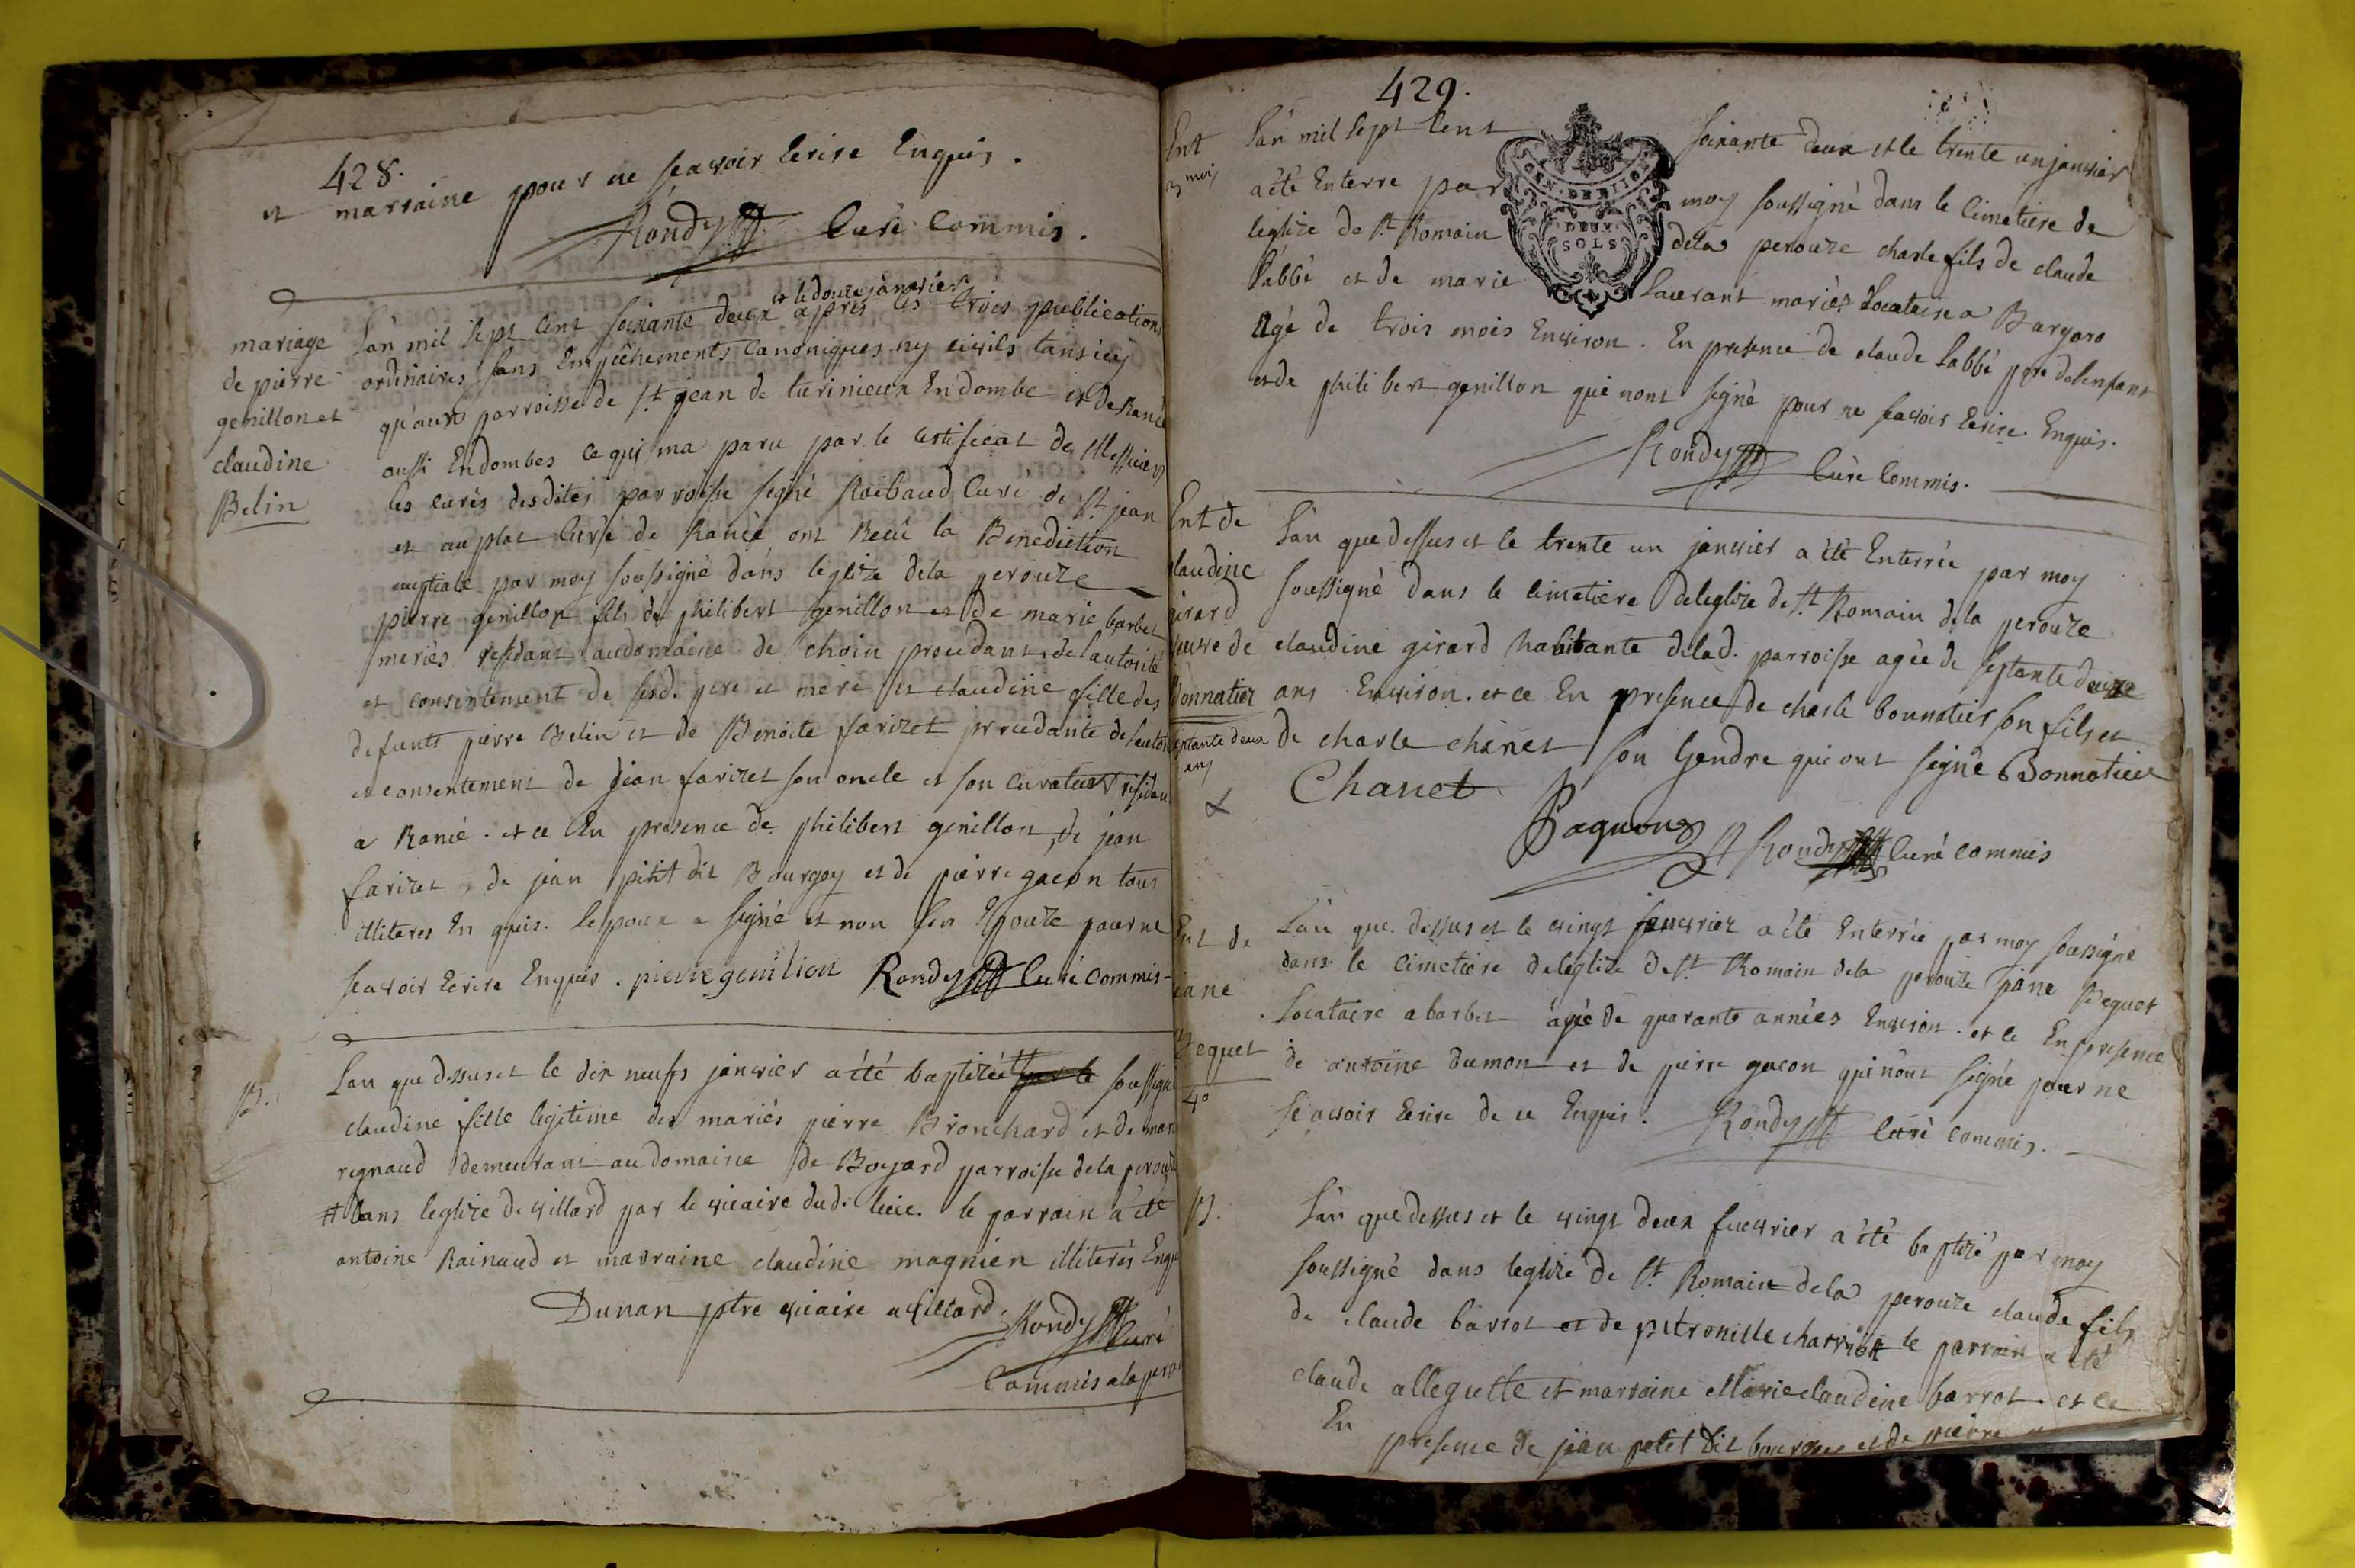 428.
et marraine pour ne scavoir Ecrire Enquis.
Rondy Curé Commis.
mariage
de pierre
genillon et
claudine
Belin
et le douze janvier
L'an mil sept cent soixante deux apres les trois publications
ordinaires sans Empêchements Canoniques ny civils tans icy
qu'aux parroisse de St jean de turinieux En dombe et de Rancé
aussi En dombes ce qui ma paru par le certificat de Messieurs
les curés desdites parroisse signé Raibaud Curé de St jean
et auplat Curé de Rancé ont Reçu la Benediction
nuptiale par moy soussigné dans leglize dela perouze
pierre genillon fils de philibert genillon et de marie barbet
mariés residant au domaine de choin procedant de lautorité
et consentement de sesd. pere et mere et claudine fille des
defunts pierre Belin et de Benoite farizet procedante de lautor
et consentement de jean farizet son oncle et son curateur residan
a Rancé. et ce En presence de philibert genillon, de jean
farizet, de jean petit dit Bourgoy et de pierre gacon tous
illiteres En quis. lepoux a signé et non son Epouze pour ne
scavoir Ecrire Enquis. pierre genillon Rondy curé commis
B.
L'an que dessus et le dix neufs janvier a été baptizée # par le soussigné
claudine fille legitime des mariés pierre Bronchard et de mar
regnaud demeurant au domaine de Boyard parroisse dela perouze
# dans leglize de villard par le vicaire dud. lieu. le parrain a été
antoine Rainaud et marraine claudine magnien illiterés Enq
Dunan ptre vicaire a villard. Rondy Curé
Commis a la perou
429.
Ent
3 mois
L'an mil sept cent soixante deux et le trente un janvier
a été Enterre par moy soussigné dans le Cimetiere de
leglize de St Romain dela perouze charle fils de claude
Labbé et de marie Laurant mariéz Locataire a Bargaro
Agé de trois mois Environ. En presence de claude Labbé pere delenfant
et de philibert genillon qui nont signé pour ne scavoir Ecrire Enquis.
Rondy Curé Commis.
GEN. DEUX SOLS
Ent de
claudine
girard
veuve de
Bonnatier
septante deux
ans
L'an que dessus et le trente un janvier a été Enterrée par moy
soussigné dans le cimetiere deleglize de St Romain dela perouze
claudine girard habitante delad. parroisse agée de septante deux
ans Environ. et ce En presence de charle bonnatier son fils et
de charle chanet son Gendre qui ont signé Bonnatier
Chanet
Pagnon
Rondy curé commis
Ent de
jane
Peguet
40
L'an que dessus et le vingt feuvrier a été Enterrée par moy soussigné
dans le cimetiere deleglize de St Romain dela perouze jane Peguet
Locataire a barbet agée de quarante années Environ. et ce En presence
de antoine dumon et de pierre gacon qui nont signé pour ne
scavoir Ecrire de ce Enquis. Rondy Curé commis.
B.
L'an que dessus et le vingt deux feuvrier a été baptizé par moy
soussigné dans leglize de St Romain dela perouze claude fils
de claude barrot et de petronille charvet le parrain a été
claude allegutte et marraine Marie claudine barrot et ce
En presence de jean petit dit bourgoy et de pierre